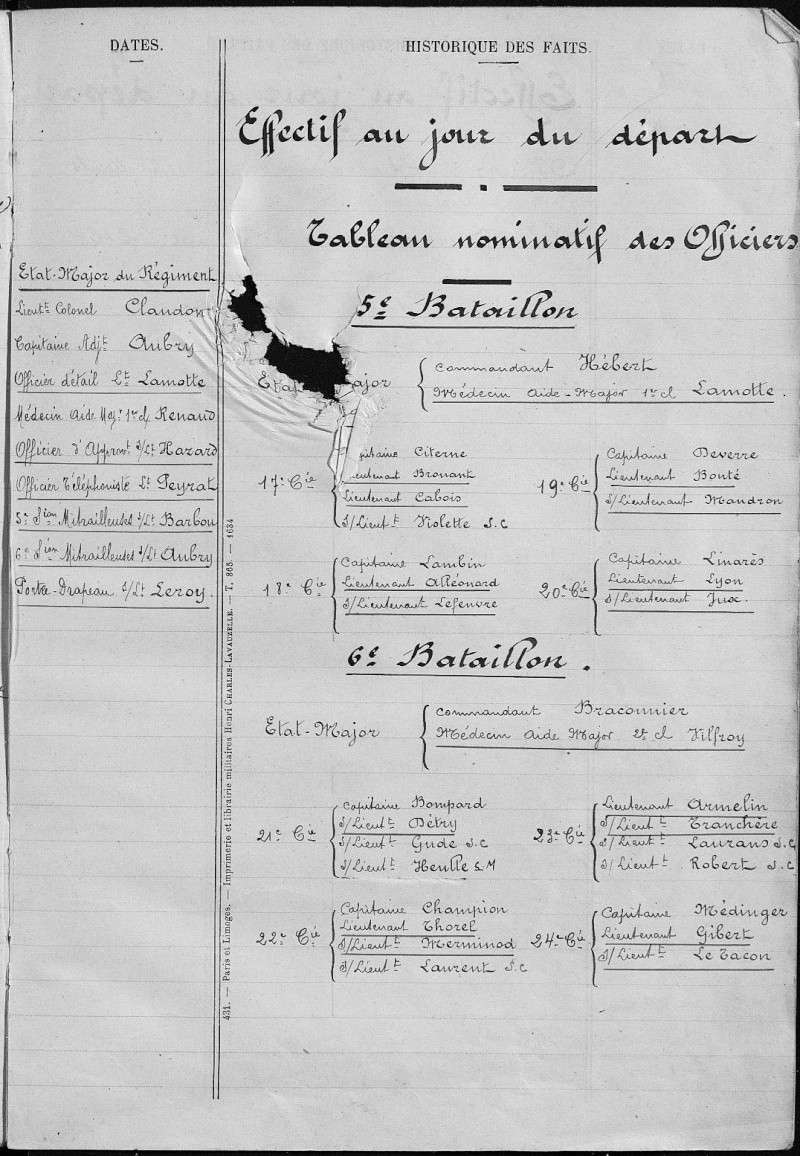 DATES.
HISTORIQUE DES FAITS.
Effectif au jour du départ
Tableau nominatif des Officiers
Etat-Major du Régiment
Lieutt Colonel Claudon
Capitaine Adjt Aubry
Officier détail Lt Lamotte
Médecin Aide Maj. 1re cl. Renaud
Officier d'Approvt s/Lt Hazard
Officier Téléphoniste Lt Peyrat
5e Son Mitrailleuses s/Lt Barbou
6e Son Mitrailleuses s/Lt Aubry
Porte-Drapeau s/Lt Leroy.
5e Bataillon
Etat-Major
Commandant Hébert
Médecin Aide-Major 1re cl Lamotte.
17e Cie
Capitaine Citerne
Lieutenant Bronant
Lieutenant Cabois
S/Lieutt Violette S.C
19e Cie
Capitaine Deverre
Lieutenant Bonté
S/Lieutenant Mandron
18e Cie
Capitaine Lambin
Lieutenant Alléonard
S/Lieutenant Lefenvre
20e Cie
Capitaine Linarès
Lieutenant Lyon
S/Lieutenant Jux.
6e Bataillon.
Etat-Major
Commandant Braconnier
Médecin Aide Major 2e cl Vilfroy
21e Cie
Capitaine Bompard
S/Lieutt Détry
S/Lieutt Gude S.C
S/Lieutt Heulle S.M
23e Cie
Lieutenant Armelin
S/Lieutt Tranchère
S/Lieutt Laurans S.C
S/Lieutt Robert S.C
22e Cie
Capitaine Champion
Lieutenant Thorel
S/Lieutt Merminod
S/Lieutt Laurent S.C
24e Cie
Capitaine Médinger
Lieutenant Gibert
S/Lieutt Le Tacon
431. — Paris et Limoges. — Imprimerie et librairie militaires Henri CHARLES-LAVAUZELLE. — T. 865. — 1634